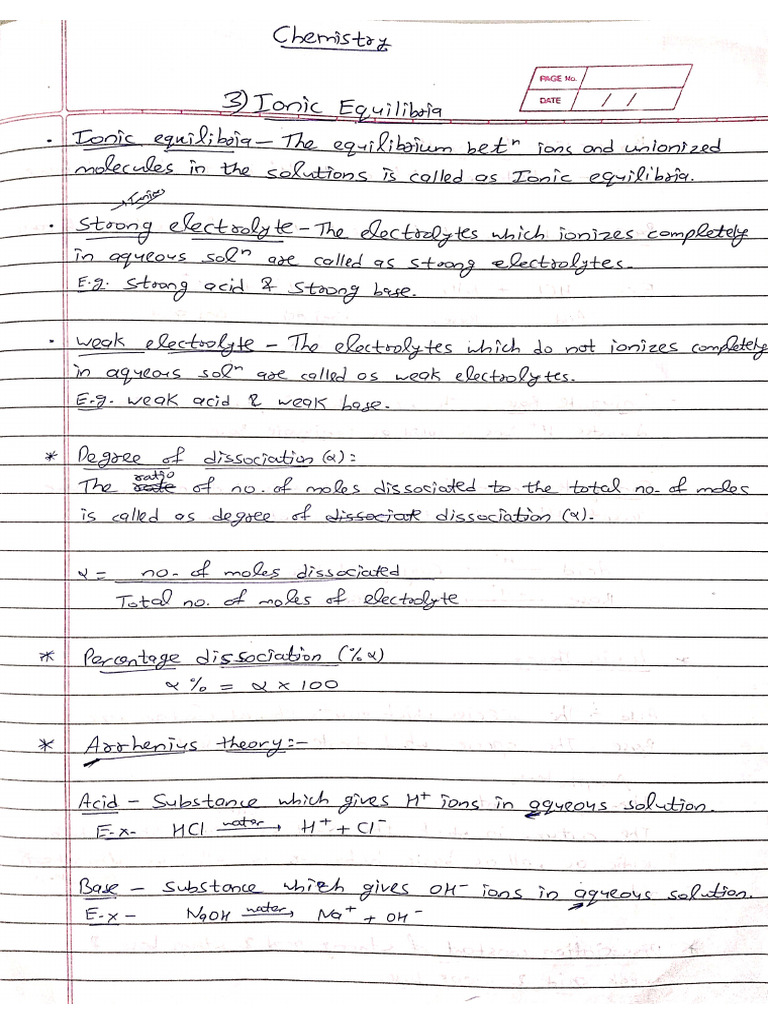 Chemistry
PAGE No.
DATE / /
3) Ionic Equilibria
• Ionic equilibria – The equilibrium betⁿ ions and unionized
molecules in the solutions is called as Ionic equilibria.
→ Ionics
• Strong electrolyte – The electrolytes which ionizes completely
in aqueous solⁿ are called as strong electrolytes.
E.g. strong acid & strong base.
• Weak electrolyte – The electrolytes which do not ionizes completely
in aqueous solⁿ are called as weak electrolytes.
E.g. weak acid & weak base.
* Degree of dissociation (α):
The ratio of no. of moles dissociated to the total no. of moles
is called as degree of dissociat dissociation (α).
α = no. of moles dissociated
Total no. of moles of electrolyte
* Percentage dissociation (% α)
α % = α × 100
* Arrhenius theory:-
Acid – Substance which gives H⁺ ions in aqueous solution.
E-x- HCl water→ H⁺ + Cl⁻
Base – Substance which gives OH⁻ ions in aqueous solution.
E-x – NaOH water→ Na⁺ + OH⁻